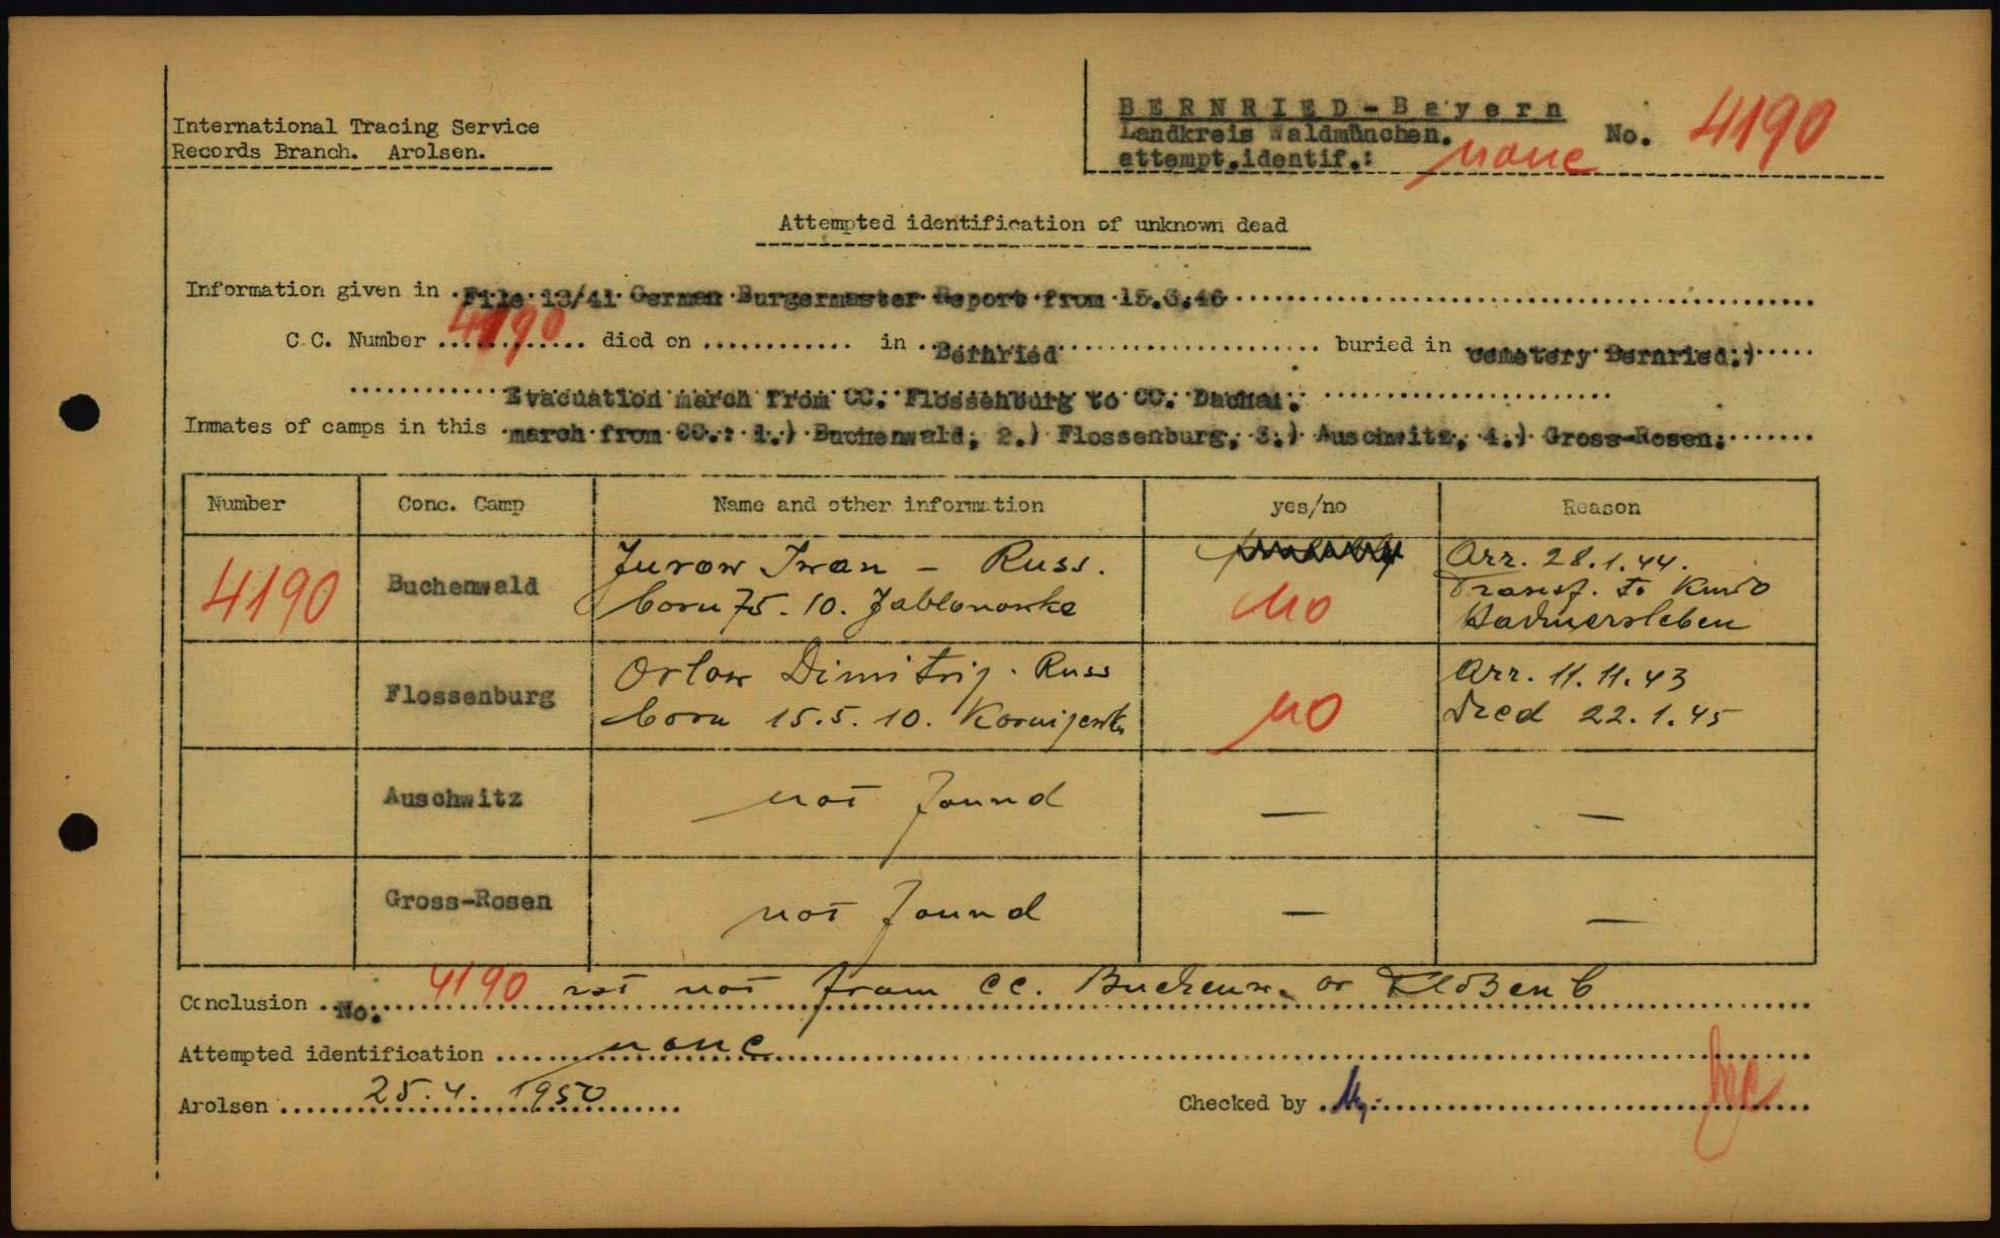 International Tracing Service
Records Branch. Arolsen.
BERNRIED-Bayern
Landkreis Waldmünchen. No. 4190
attempt.identif.: none
Attempted identification of unknown dead
Information given in File 13/41 German Burgermaster Report from 15.3.46
C.C. Number 4190 died on ............ in Bernried buried in cemetery Bernried.;
Evacuation march from CC. Flossenburg to CC. Dachau.
Inmates of camps in this march from CC.: 1.) Buchenwald, 2.) Flossenburg, 3.) Auschwitz, 4.) Gross-Rosen.
Number Conc. Camp Name and other information yes/no Reason
4190 Buchenwald Jurow Iwan - Russ. no Arr. 28.1.44.
born 75. 10. Jablonowka Transf. to
Hadmersleben
Flossenburg Orlow Dimitrij. Russ no Arr. 11.11.43
born 15.5.10. Died 22.1.45
Auschwitz not found — —
Gross-Rosen not found — —
Conclusion No: 4190 not from CC. Buchenw. or Floßenb
Attempted identification none
Arolsen 25.4. 1950 Checked by